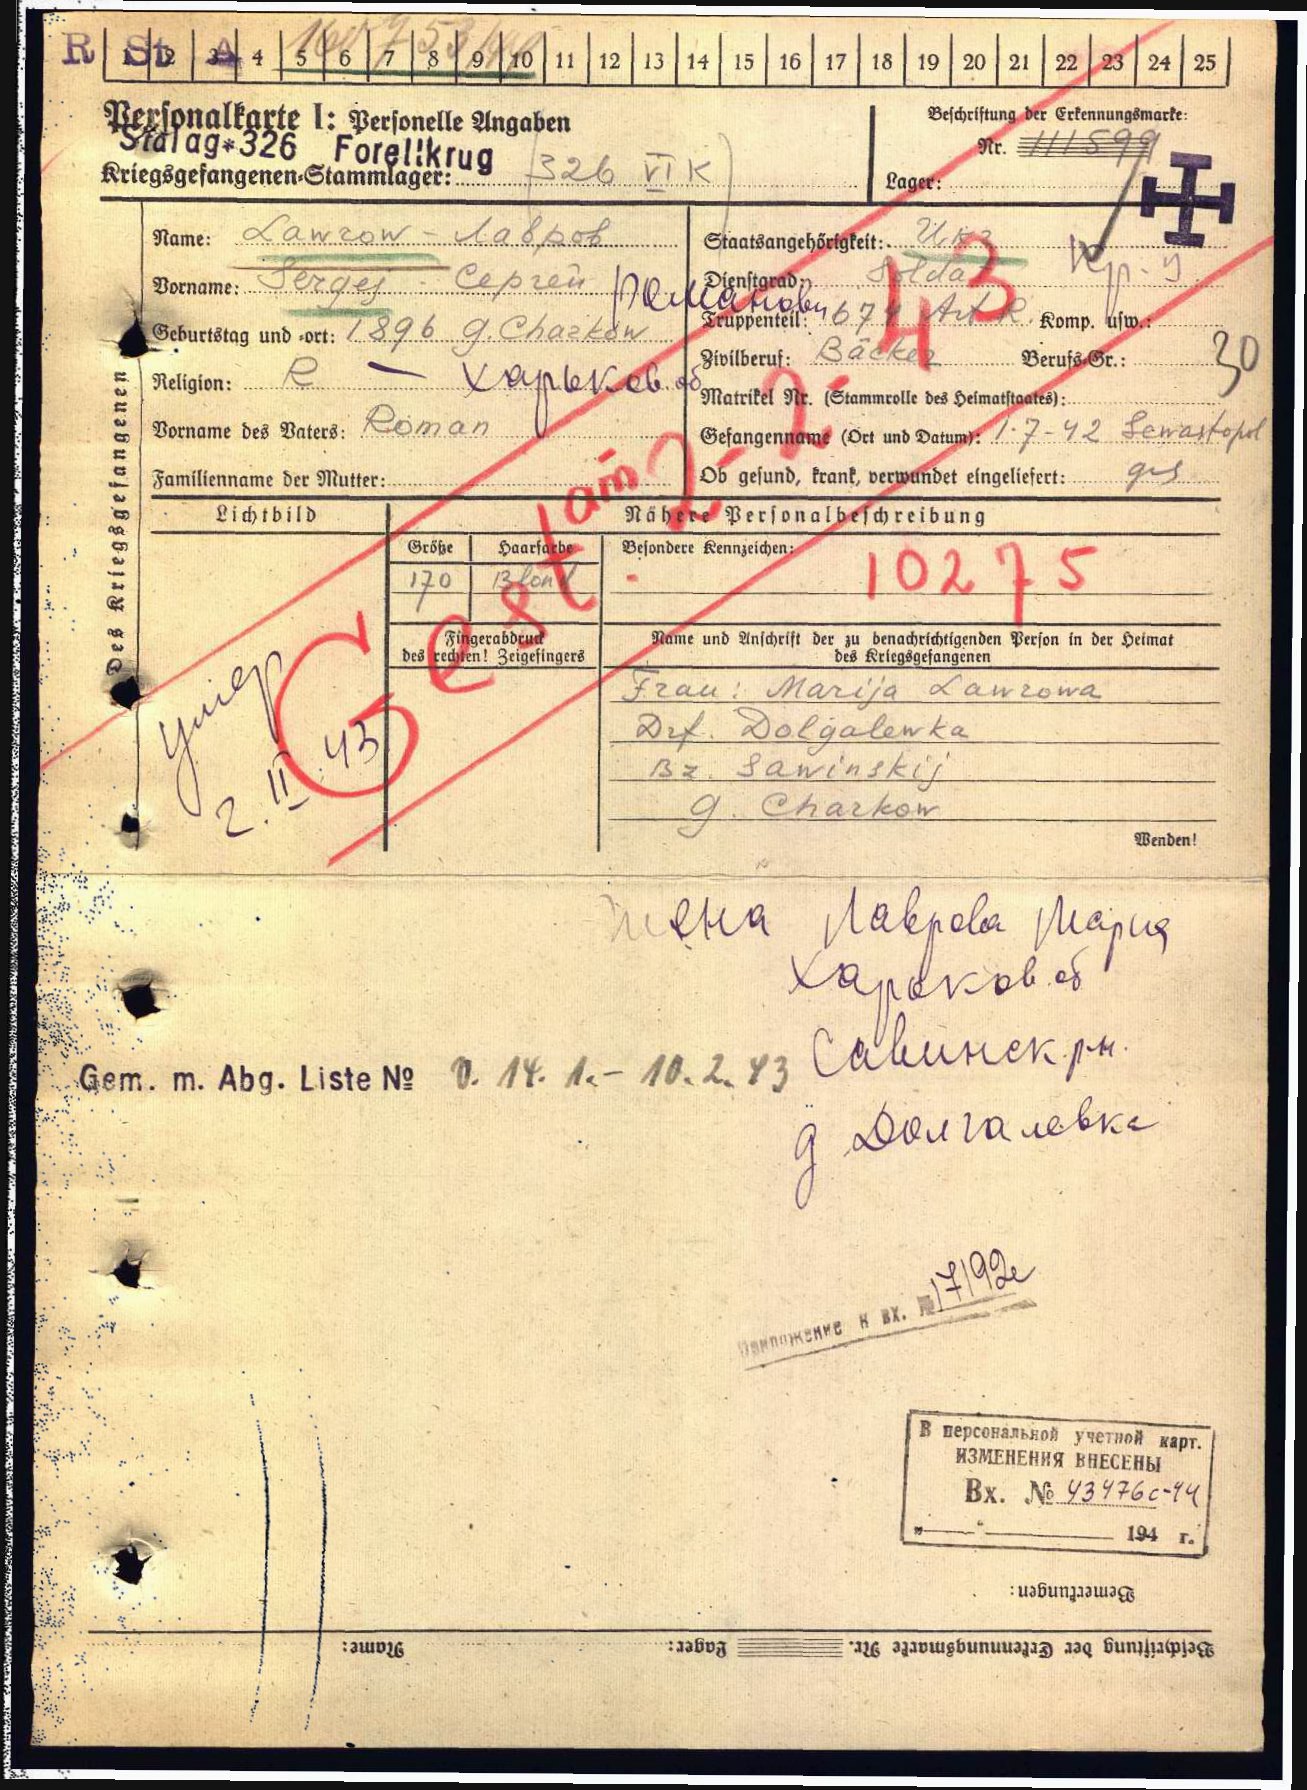 R St A
1 2 3 4 5 6 7 8 9 10 11 12 13 14 15 16 17 18 19 20 21 22 23 24 25
Personalkarte I: Personelle Angaben
Stalag*326 Forellkrug
Kriegsgefangenen-Stammlager: 326 VI K
Beschriftung der Erkennungsmarke:
Nr. 111599
Lager:
Des Kriegsgefangenen
Name: Lawrow - Лавров
Vorname: Sergej - Сергей Романови
Geburtstag und -ort: 1896 g. Charkow
Religion: R — Харьков. об
Vorname des Vaters: Roman
Familienname der Mutter:
Staatsangehörigkeit: Ukr
Dienstgrad: Solda
Truppenteil: 674 Art R. Komp. usw.:
Zivilberuf: Bäcker Berufs-Gr.: 30
Matrikel Nr. (Stammrolle des Heimatstaates):
Gefangenname (Ort und Datum): 1-7-42 Sewastopol
Ob gesund, krank, verwundet eingeliefert: ges
Gest. am 2-2-43
Lichtbild
Nähere Personalbeschreibung
Größe Haarfarbe Besondere Kennzeichen:
170 Blond
10275
Fingerabdruck
des rechten! Zeigefingers
Name und Anschrift der zu benachrichtigenden Person in der Heimat
des Kriegsgefangenen
Frau: Marija Lawrowa
Drf. Dolgalewka
Bz. Sawinskij
g. Charkow
Wenden!
умер
2. II 43
Жена Лаврова Мария
Харьков. об
Савинск. рн.
д Долгалевка
Gem. m. Abg. Liste № v. 14. 1.- 10. 2. 43
Приложение к вх. № 17192с
В персональной учетной карт.
ИЗМЕНЕНИЯ ВНЕСЕНЫ
Вх. № 43476с-44
„ “ 194 г.
Bemerkungen:
Beschriftung der Erkennungsmarke Nr. Lager: Name: